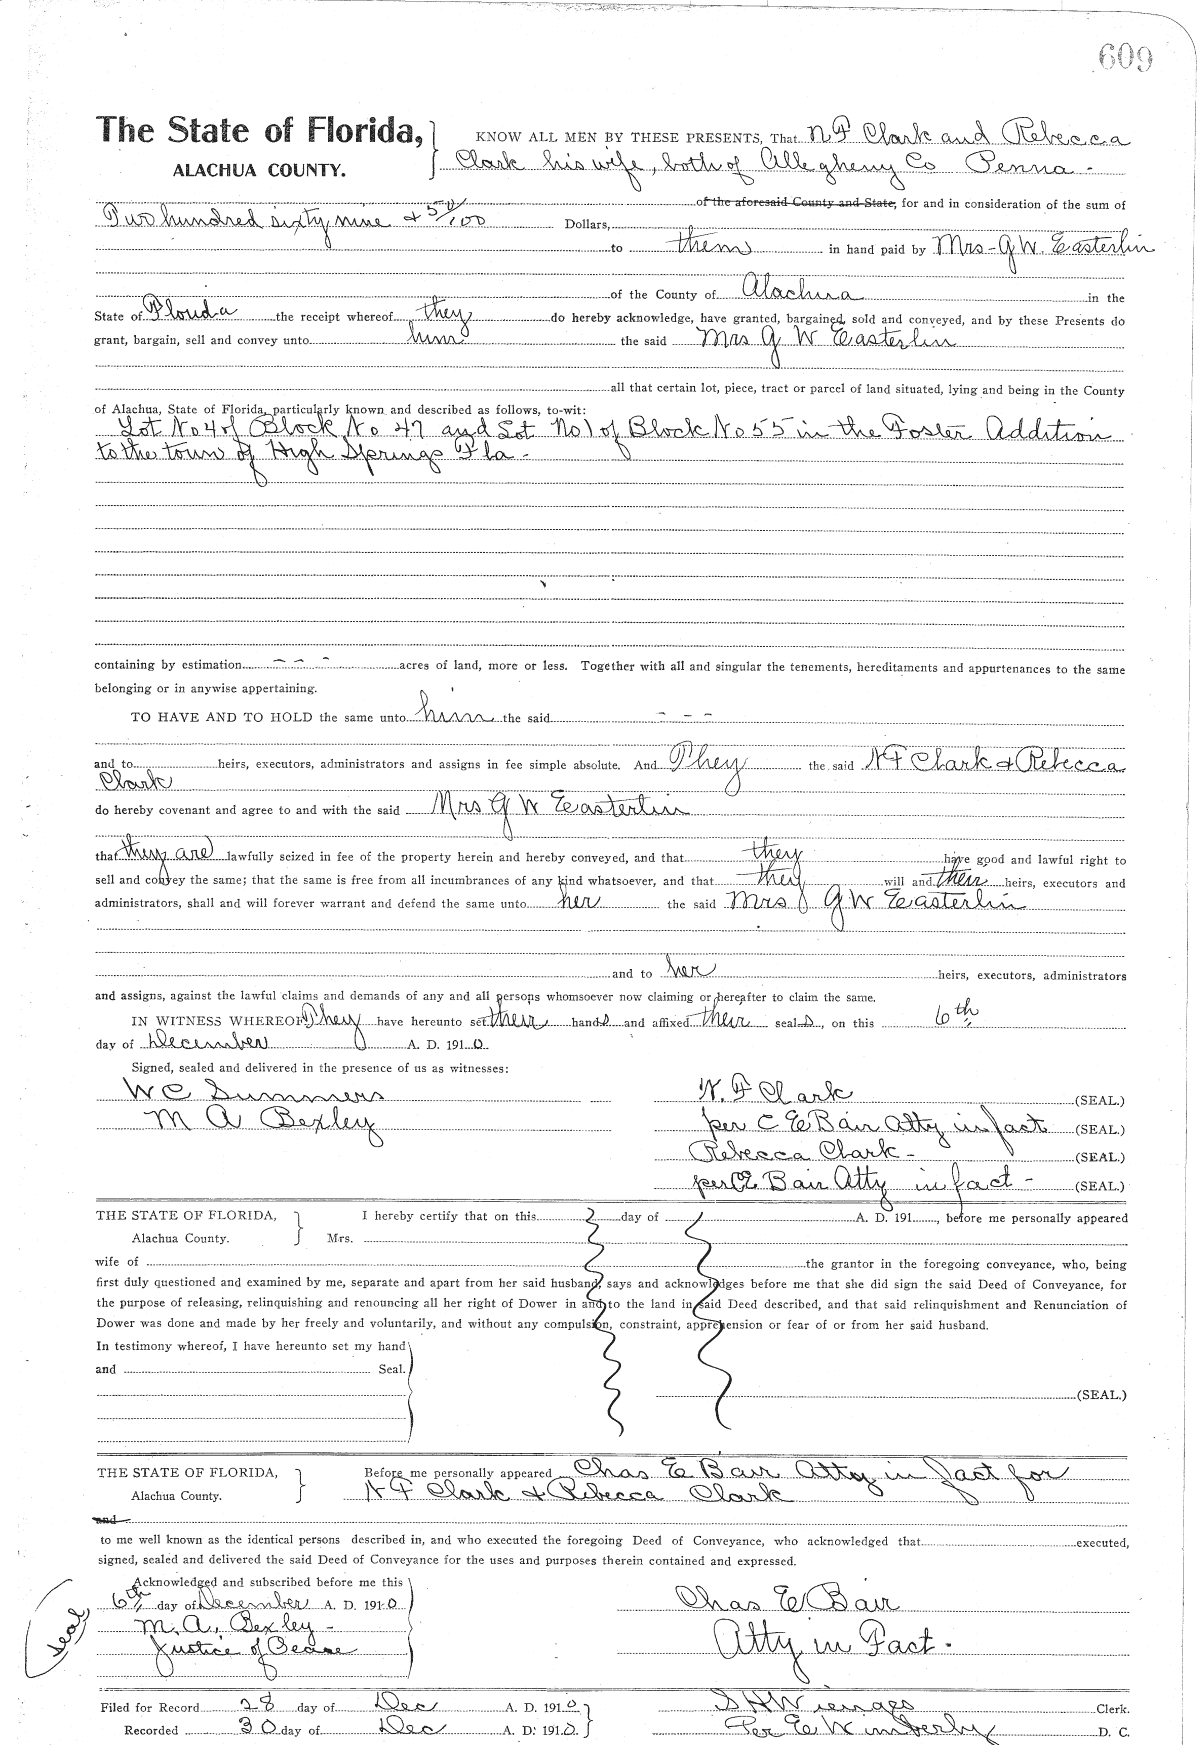 609
The State of Florida,
ALACHUA COUNTY.
KNOW ALL MEN BY THESE PRESENTS, That N F Clark and Rebecca
Clark his wife, both of Allegheny Co Penna -
of the aforesaid County and State, for and in consideration of the sum of
Two hundred sixty nine & 50/100 Dollars,
to them in hand paid by Mrs - G W. Easterlin
of the County of Alachua in the
State of Florida the receipt whereof they do hereby acknowledge, have granted, bargained, sold and conveyed, and by these Presents do
grant, bargain, sell and convey unto him the said Mrs G W Easterlin
all that certain lot, piece, tract or parcel of land situated, lying and being in the County
of Alachua, State of Florida, particularly known and described as follows, to-wit:
Lot No 4 of Block No 47 and Lot No 1 of Block No 55 in the Foster Addition
to the town of High Springs Fla -
containing by estimation - - - acres of land, more or less. Together with all and singular the tenements, hereditaments and appurtenances to the same
belonging or in anywise appertaining.
TO HAVE AND TO HOLD the same unto him the said - - -
and to heirs, executors, administrators and assigns in fee simple absolute. And They the said N F Clark & Rebecca
Clark
do hereby covenant and agree to and with the said Mrs G W Easterlin
that they are lawfully seized in fee of the property herein and hereby conveyed, and that they have good and lawful right to
sell and convey the same; that the same is free from all incumbrances of any kind whatsoever, and that they will and their heirs, executors and
administrators, shall and will forever warrant and defend the same unto her the said Mrs G W Easterlin
and to her heirs, executors, administrators
and assigns, against the lawful claims and demands of any and all persons whomsoever now claiming or hereafter to claim the same.
IN WITNESS WHEREOF They have hereunto set their hands and affixed their seals, on this 6th
day of December A. D. 1910
Signed, sealed and delivered in the presence of us as witnesses:
W C Summers N. F Clark (SEAL.)
M A Bexley per C E Bair Atty in fact (SEAL.)
Rebecca Clark - (SEAL.)
per C E Bair Atty in fact - (SEAL.)
THE STATE OF FLORIDA, I hereby certify that on this day of A. D. 191 , before me personally appeared
Alachua County. Mrs.
wife of the grantor in the foregoing conveyance, who, being
first duly questioned and examined by me, separate and apart from her said husband, says and acknowledges before me that she did sign the said Deed of Conveyance, for
the purpose of releasing, relinquishing and renouncing all her right of Dower in and to the land in said Deed described, and that said relinquishment and Renunciation of
Dower was done and made by her freely and voluntarily, and without any compulsion, constraint, apprehension or fear of or from her said husband.
In testimony whereof, I have hereunto set my hand
and Seal.
(SEAL.)
THE STATE OF FLORIDA, Before me personally appeared Chas E Bair Atty in fact for
Alachua County. N F Clark & Rebecca Clark
and
to me well known as the identical persons described in, and who executed the foregoing Deed of Conveyance, who acknowledged that executed,
signed, sealed and delivered the said Deed of Conveyance for the uses and purposes therein contained and expressed.
Acknowledged and subscribed before me this
6th day of December A. D. 1910 Chas E Bair
M. A. Bexley - Atty in Fact.
Justice of Peace
Seal
Filed for Record 28 day of Dec A. D. 1910 S H Wienges Clerk.
Recorded 30 day of Dec A. D. 1910. Per E Wimberly D. C.